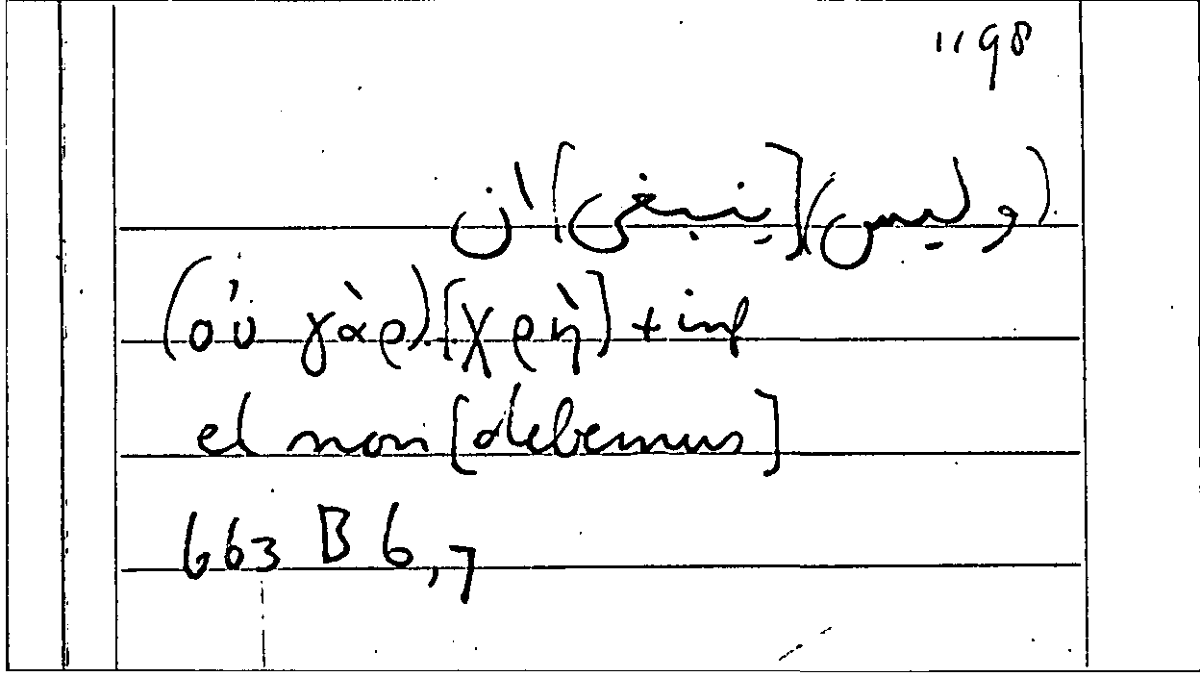 1198
(وليس)[ينبغى] ان
(οὐ γὰρ)[χρὴ] + inf
et non [debemus]
663 B 6,7